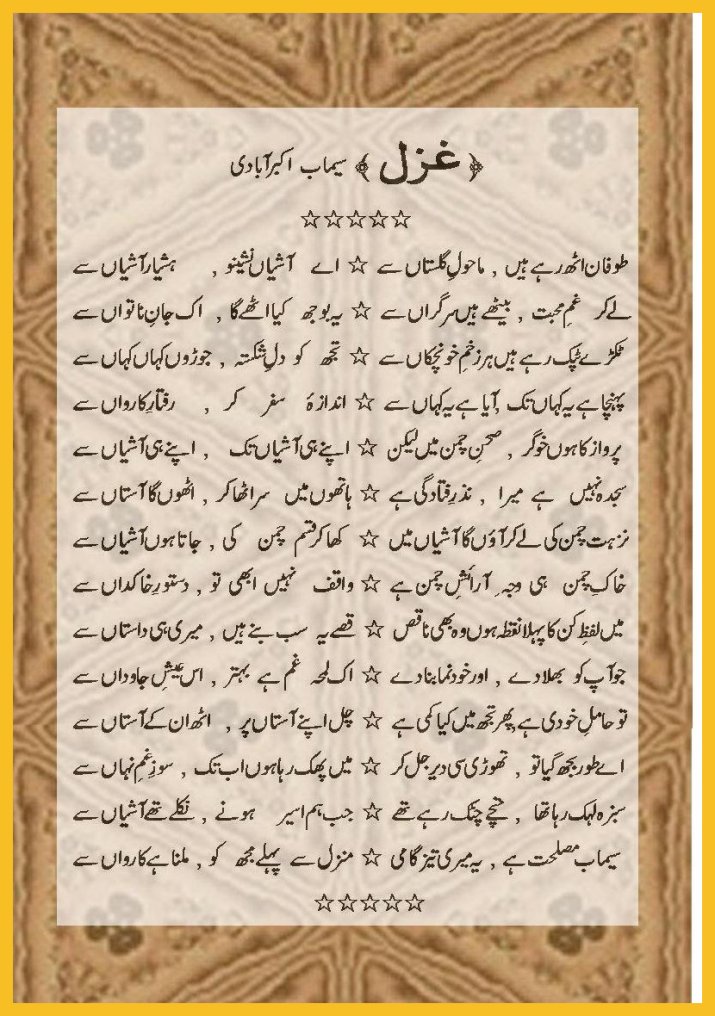 ﴿ غزل ﴾ سیماب اکبرآبادی
☆☆☆☆☆
طوفان اٹھ رہے ہیں , ماحولِ گلستاں سے ☆ اے آشیاں نشینو , ہشیار آشیاں سے
لے کر غمِ محبت , بیٹھے ہیں سرگراں سے ☆ یہ بوجھ کیا اٹھے گا , اک جانِ ناتواں سے
ٹکڑے ٹپک رہے ہیں ہر زخمِ خونچکاں سے ☆ تجھ کو دلِ شکستہ , جوڑوں کہاں کہاں سے
پہنچا ہے یہ کہاں تک , آیا ہے یہ کہاں سے ☆ اندازۂ سفر کر , رفتارِ کارواں سے
پرواز کا ہوں خوگر , صحنِ چمن میں لیکن ☆ اپنے ہی آشیاں تک , اپنے ہی آشیاں سے
سجدہ نہیں ہے میرا , نذرِ فتادگی ہے ☆ ہاتھوں میں سر اٹھا کر , اٹھوں گا آستاں سے
نزہت چمن کی لے کر آؤں گا آشیاں میں ☆ کھا کر قسم چمن کی , جاتا ہوں آشیاں سے
خاکِ چمن ہی وجہِ آرائشِ چمن ہے ☆ واقف نہیں ابھی تو , دستورِ خاکداں سے
میں لفظِ کن کا پہلا نقطہ ہوں وہ بھی ناقص ☆ قصے یہ سب بنے ہیں , میری ہی داستاں سے
جو آپ کو بھلا دے , اور خود نما بنا دے ☆ اک لمحہ غم ہے بہتر , اس عیشِ جاوداں سے
تو حاملِ خودی ہے , پھر تجھ میں کیا کمی ہے ☆ چل اپنے آستاں پر , اٹھ ان کے آستاں سے
اے طور بجھ گیا تو , تھوڑی سی دیر جل کر ☆ میں پھک رہا ہوں اب تک , سوزِ غمِ نہاں سے
سبزہ لہک رہا تھا , غنچے چٹک رہے تھے ☆ جب ہم اسیر ہونے , نکلے تھے آشیاں سے
سیماب مصلحت ہے , یہ میری تیز گامی ☆ منزل سے پہلے مجھ کو , ملنا ہے کارواں سے
☆☆☆☆☆